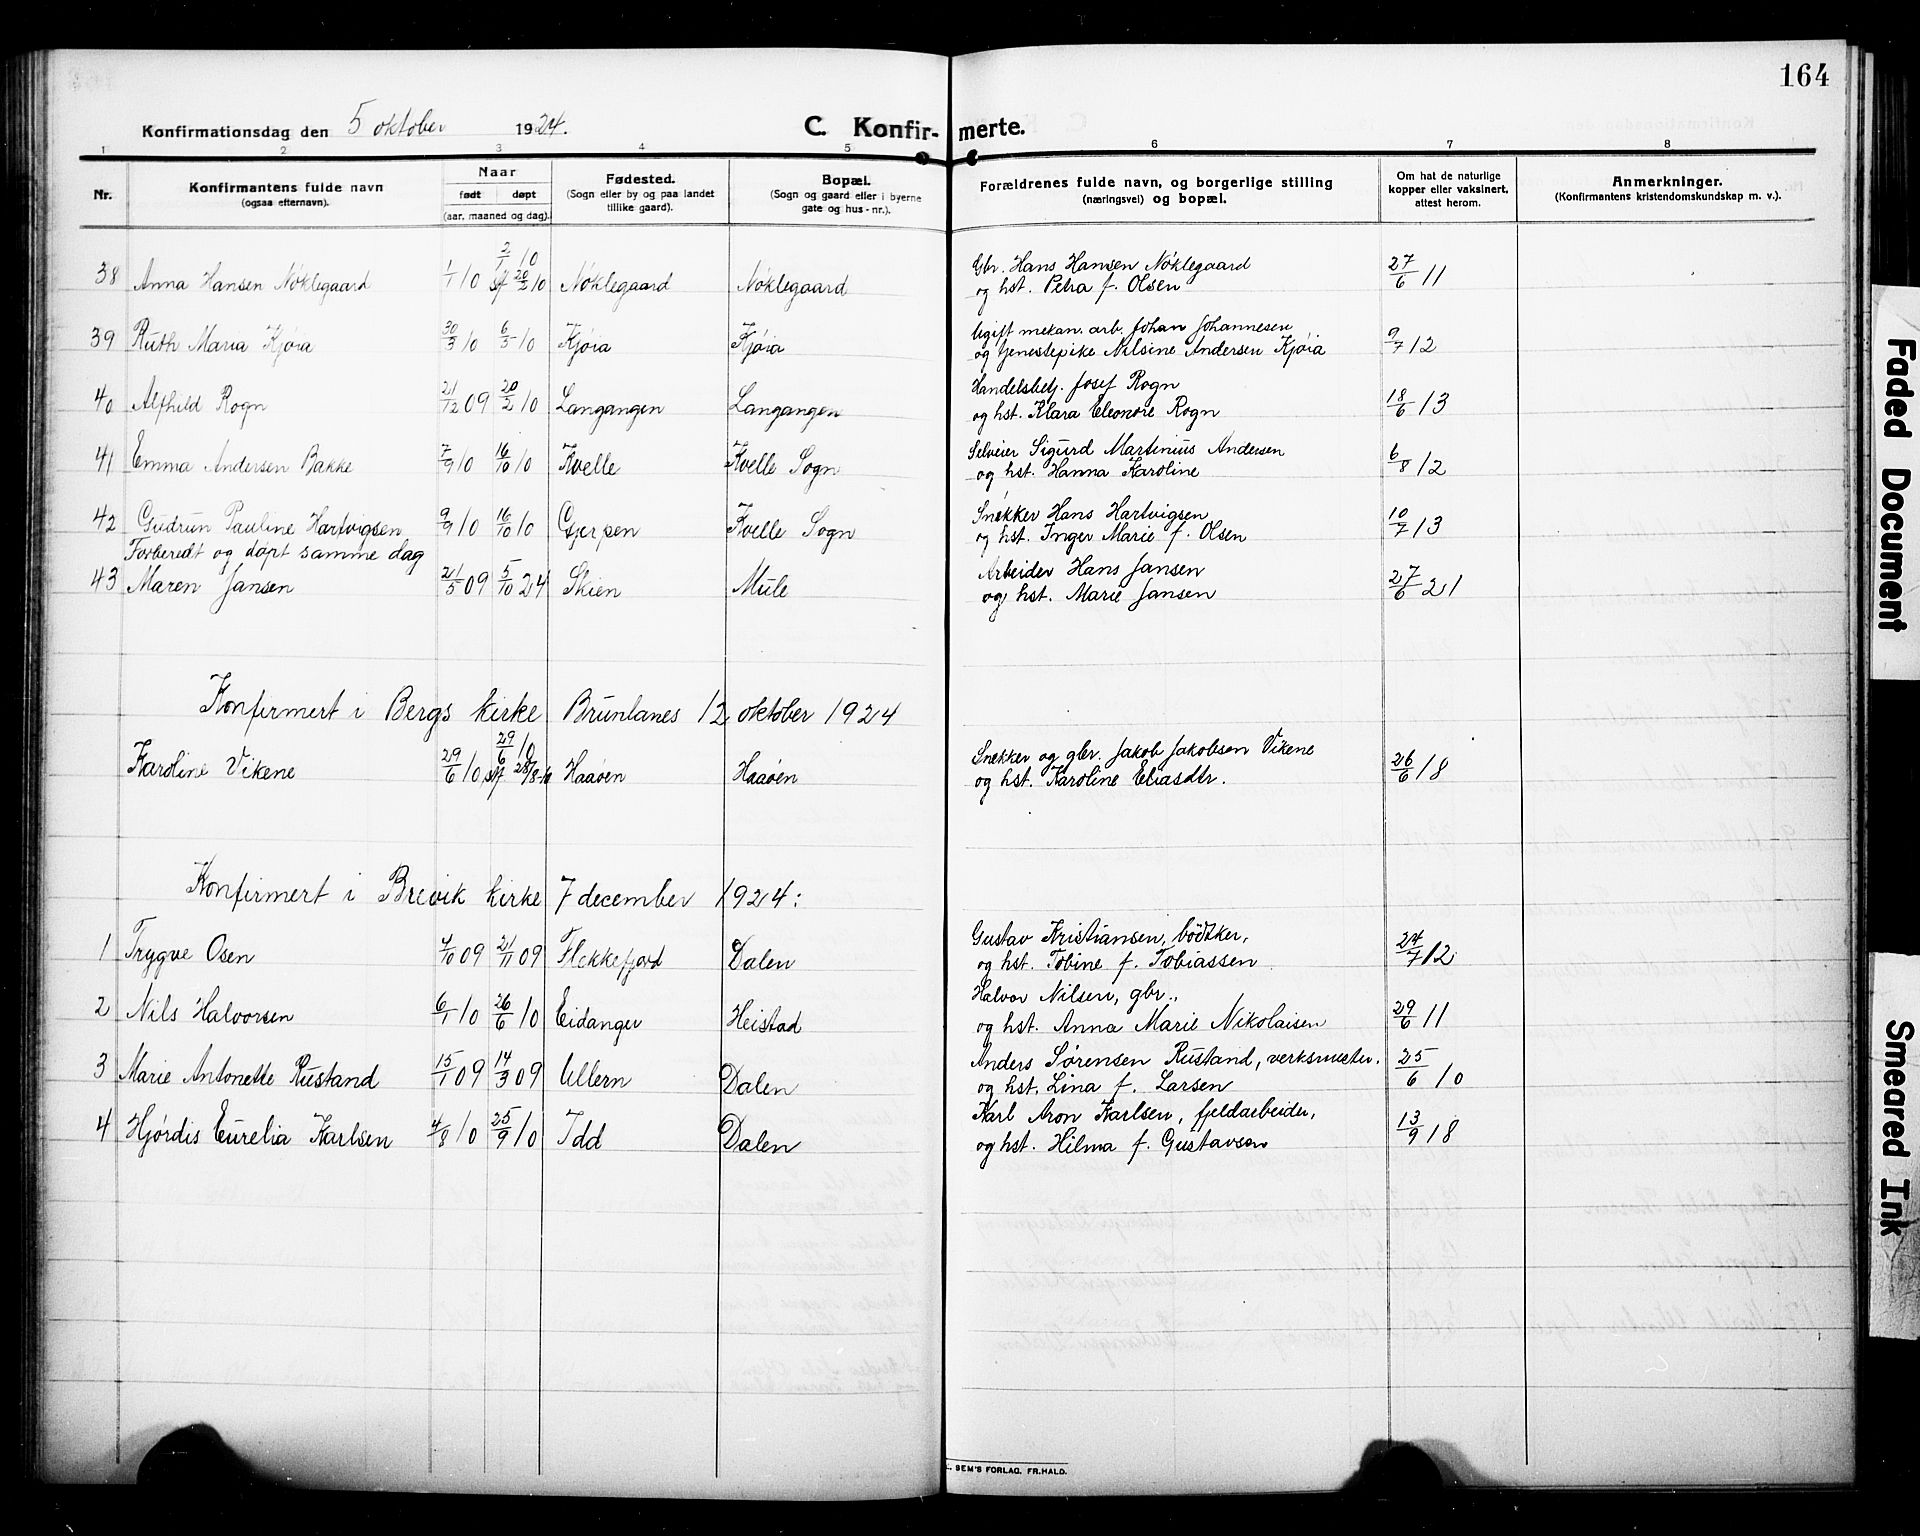 164
Konfirmationsdag den 5 oktober 1924. C. Konfirmerte.
1 2 3 4 5 6 7 8
Nr. Konfirmantens fulde navn (ogsaa efternavn). Naar født døpt (aar, maaned og dag). Fødested. (Sogn eller by og paa landet tillike gaard). Bopæl. (Sogn og gaard eller i byerne gate og hus-nr.). Forældrenes fulde navn, og borgerlige stilling (næringsvei) og bopæl. Om hat de naturlige kopper eller vaksinert, attest herom. Anmerkninger. (Konfirmantens kristendomskundskap m. v.).
2/1 10 Gbr. Hans Hansen Nøklegaard
38 Anna Hansen Nøklegaard 1/1 10 st 20/2 10 Nøklegaard Nøklegaard og hst. Petra f. Olsen 27/6 11
Ugift mekan. arb. Johan Johannesen
39 Ruth Maria Kjøia 30/3 10 6/5 10 Kjøia Kjøia og tjenestepike Nilsine Andersen Kjøia 9/7 12
Handelsbetj. Josef Rogn
40 Alfhild Rogn 21/12 09 20/2 10 Langangen Langangen og hst. Klara Eleonore Rogn 18/6 13
Selveier Sigurd Martinius Andersen
41 Emma Andersen Bakke 7/9 10 16/10 10 Kvelle Kvelle Sogn og hst. Hanna Karoline 6/8 12
Snekker Hans Hartvigsen
42 Gudrun Pauline Hartvigsen 9/9 10 16/10 10 Gjerpen Kvelle Sogn og hst. Inger Marie f. Olsen 10/7 13
Forberedt og døpt samme dag Arbeider Hans Jansen
43 Maren Jansen 21/5 09 5/10 24 Skien Mule og hst. Marie Jansen 27/6 21
Konfirmert i Bergs kirke Brunlanes 12 oktober 1924
29/6 10 Snekker og gbr. Jakob Jakobsen Vikene
Karoline Vikene 29/6 10 st 28/8-10 Haaøen Haaøen og hst. Karoline Eliasdtr. 26/6 18
Konfirmert i Brevik kirke 7 december 1924:
Gustav Kristiansen, bødtker,
1 Trygve Osen 4/10 09 21/11 09 Flekkefjord Dalen og hst. Tobine f. Tobiassen 24/7 12
Halvor Nilsen, gbr.,
2 Nils Halvorsen 6/1 10 26/6 10 Eidanger Heistad og hst. Anna Marie Nikolaisen 29/6 11
Anders Sørensen Rustand, verksmester.
3 Marie Antonette Rustand 15/1 09 14/3 09 Ullern Dalen og hst. Lina f. Larsen 25/6 10
Karl Aron Karlsen, fjeldarbeider,
4 Hjørdis Eurelia Karlsen 4/8 10 25/9 10 Idd Dalen og hst. Hilma f. Gustavsen 13/9 18
SEM'S FORLAG. FR.HALD.
Faded Document
Smeared Ink